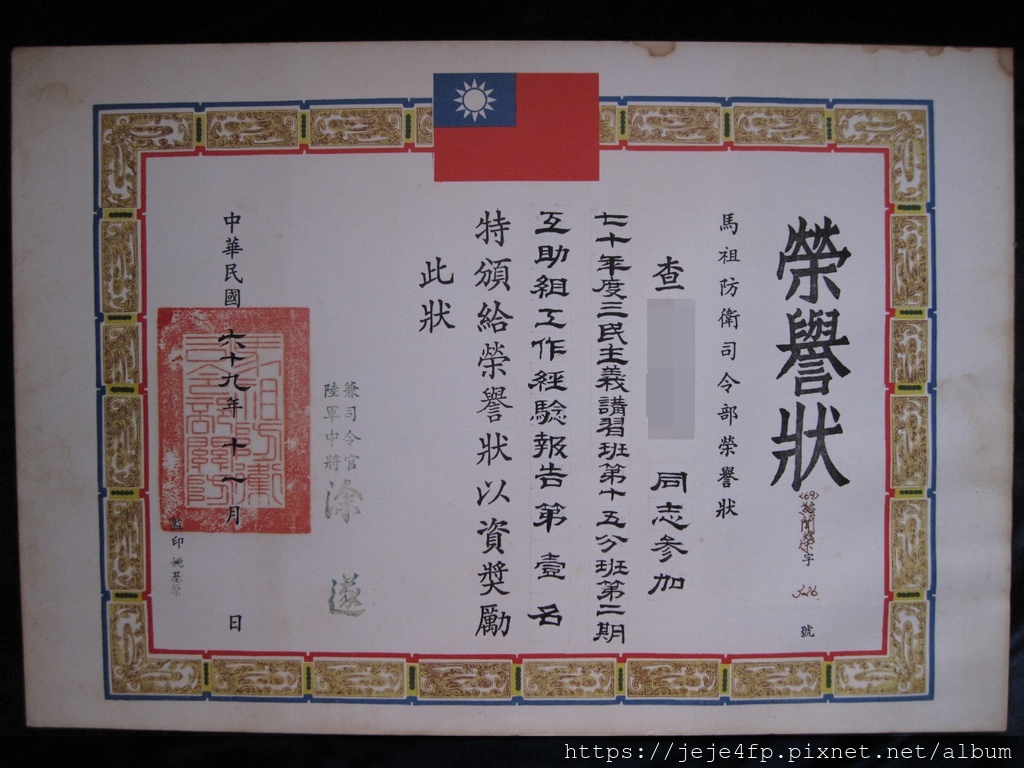 榮譽狀
(69)
字
號
馬祖防衛司令部榮譽狀
查 同志參加
七十年度三民主義講習班第十五分班第二期
互助組工作經驗報告第壹名
特頒給榮譽狀以資獎勵
此狀
兼司令官
陸軍中將
涂遂
中華民國六十九年十一月 日
監印
https://jeje4fp.pixnet.net/album